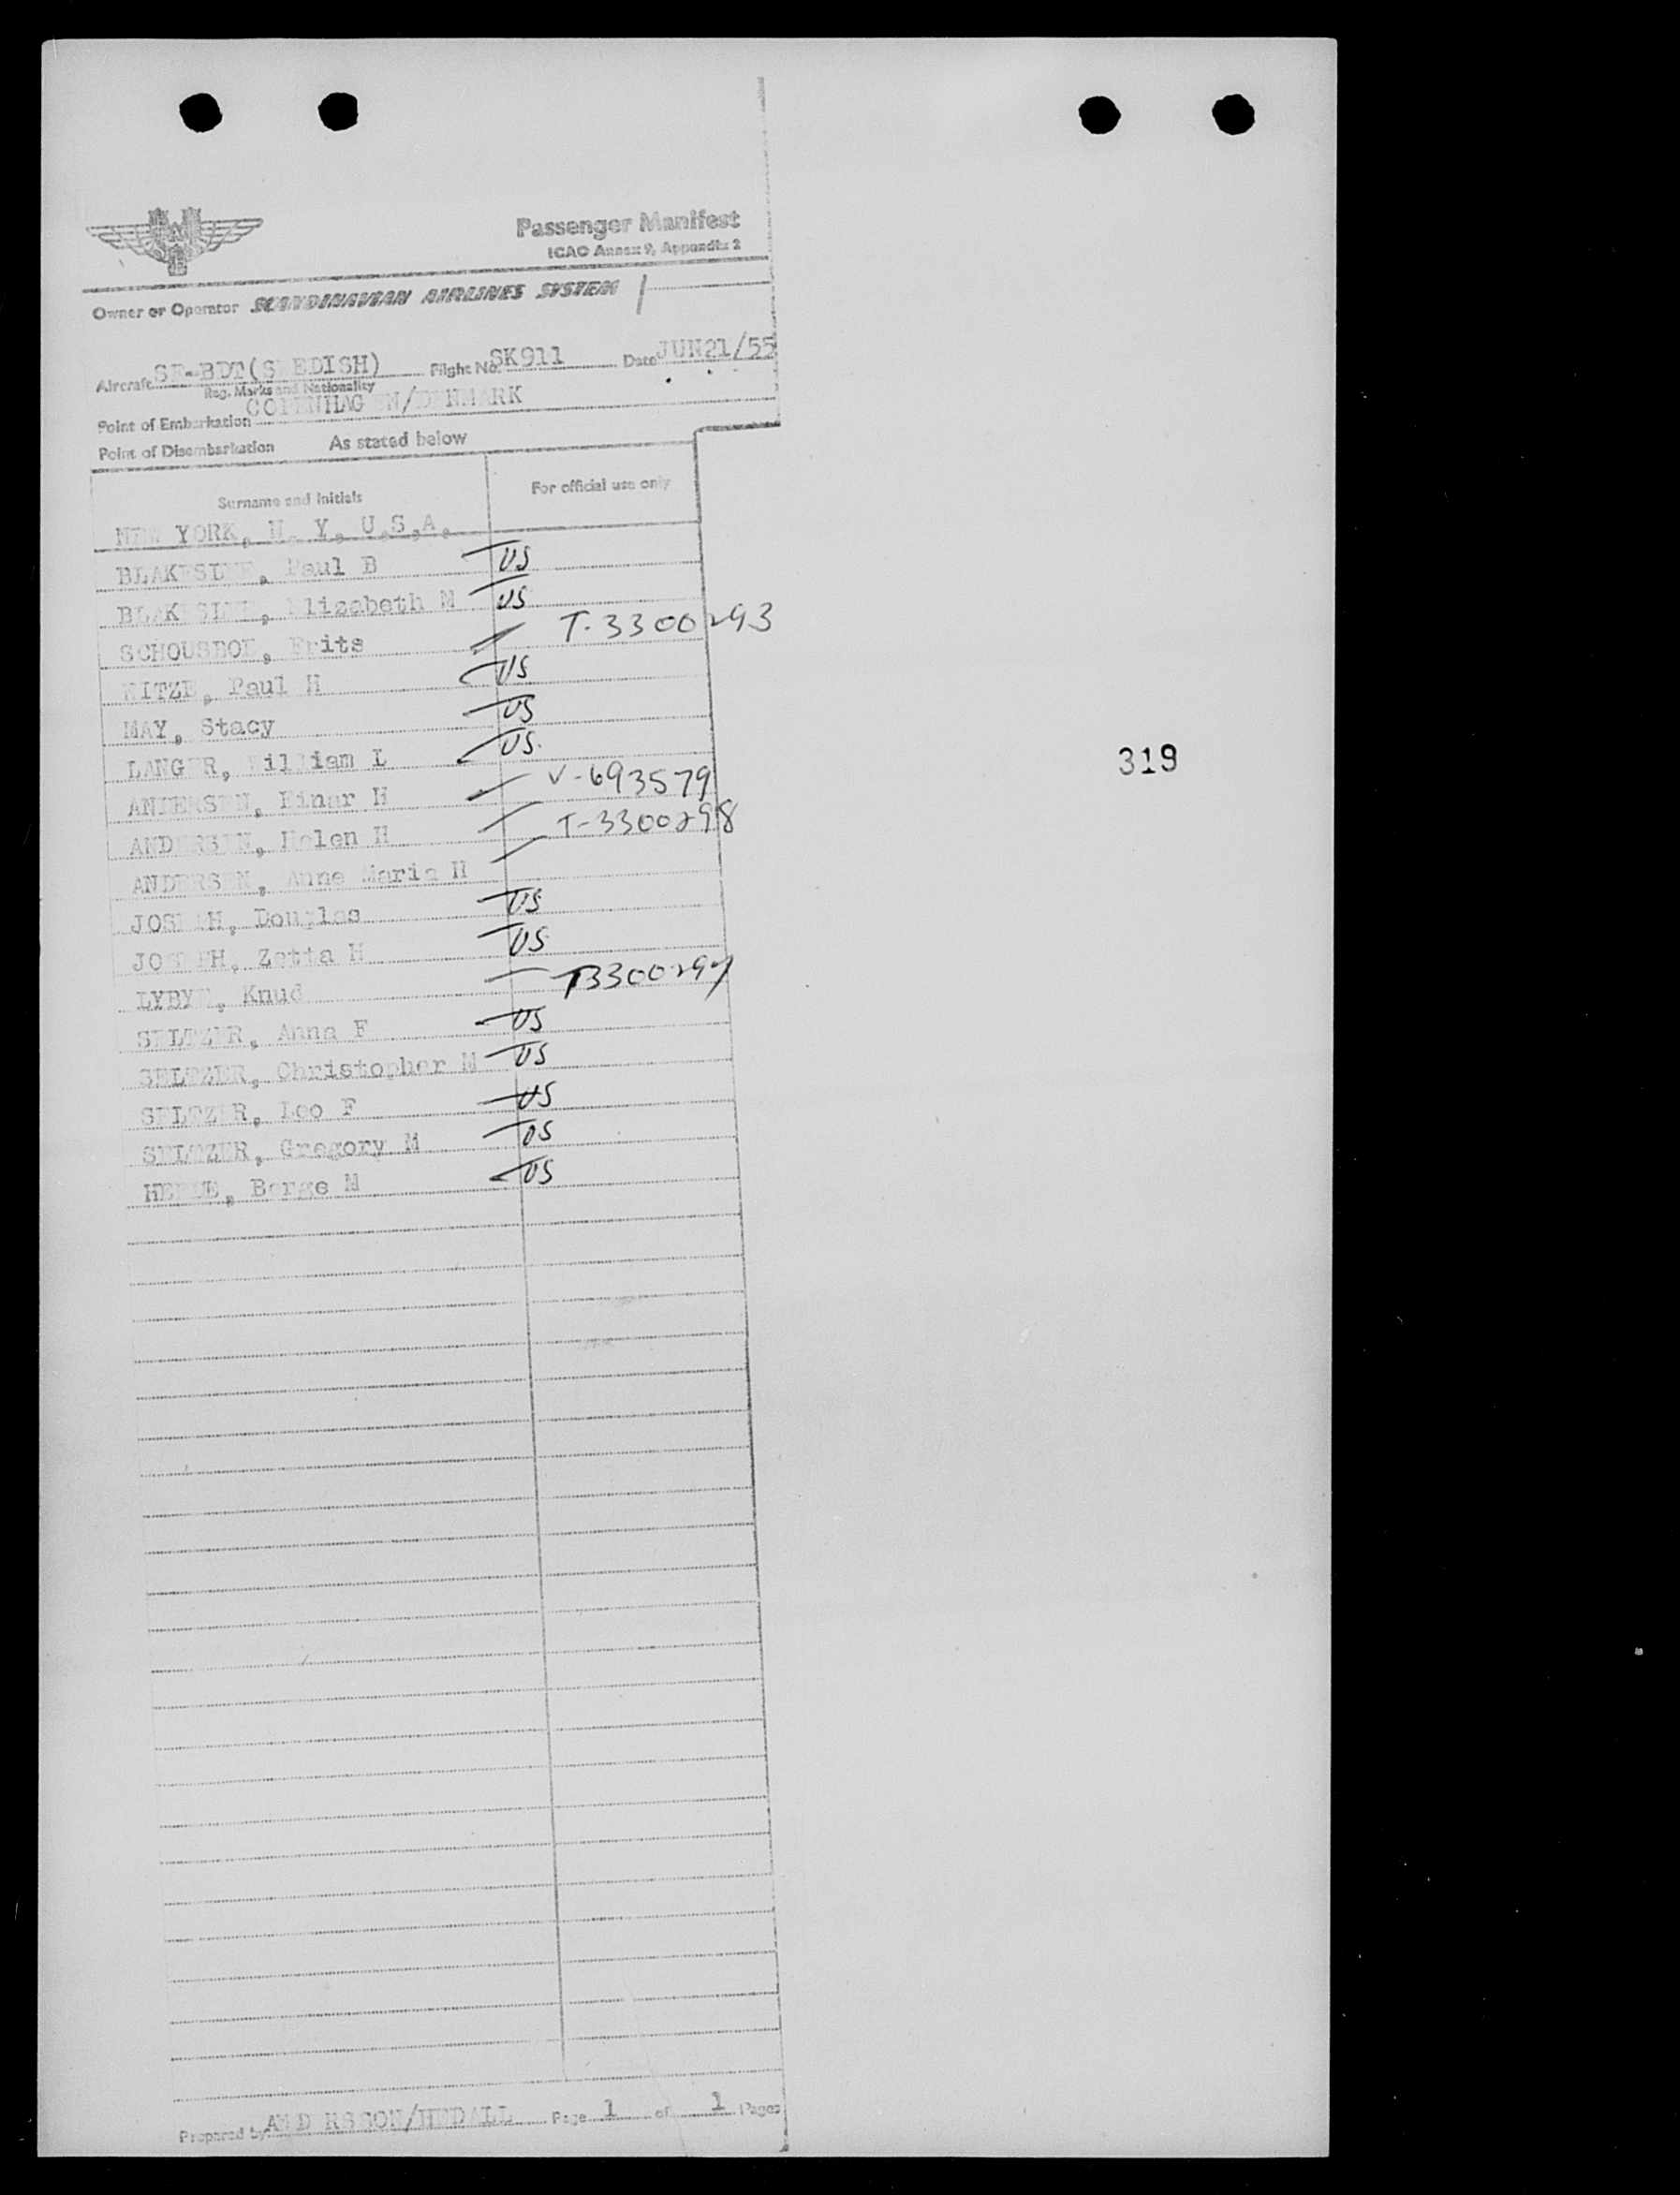 Passenger Manifest
ICAO Annex 9, Appendix 2
Owner or Operator SCANDINAVIAN AIRLINES SYSTEM
Aircraft SE-BDT(SWEDISH) Flight No. SK911 Date JUN21/55
Reg. Marks and Nationality
Point of Embarkation COPENHAGEN/DENMARK
Point of Disembarkation As stated below
Surname and Initials For official use only
NEW YORK, N. Y, U.S.A.
BLAKESLEE, Paul B US
BLAKESLEE, Elizabeth M US
SCHOUSBOE, Frits T-3300293
NITZE, Paul H US
MAY, Stacy US
LANGER, William L US.
ANDERSEN, Einar H V-693579
ANDERSEN, Helen H T-3300298
ANDERSEN, Anne Marie H
JOSEPH, Douglas US
JOSEPH, Zetta H US
LYBYE, Knud
SELTZER, Anna F US
SELTZER, Christopher M US
SELTZER, Leo F US
SELTZER, Gregory M US
Borge M US
Prepared by Page 1 of 1 Pages
319